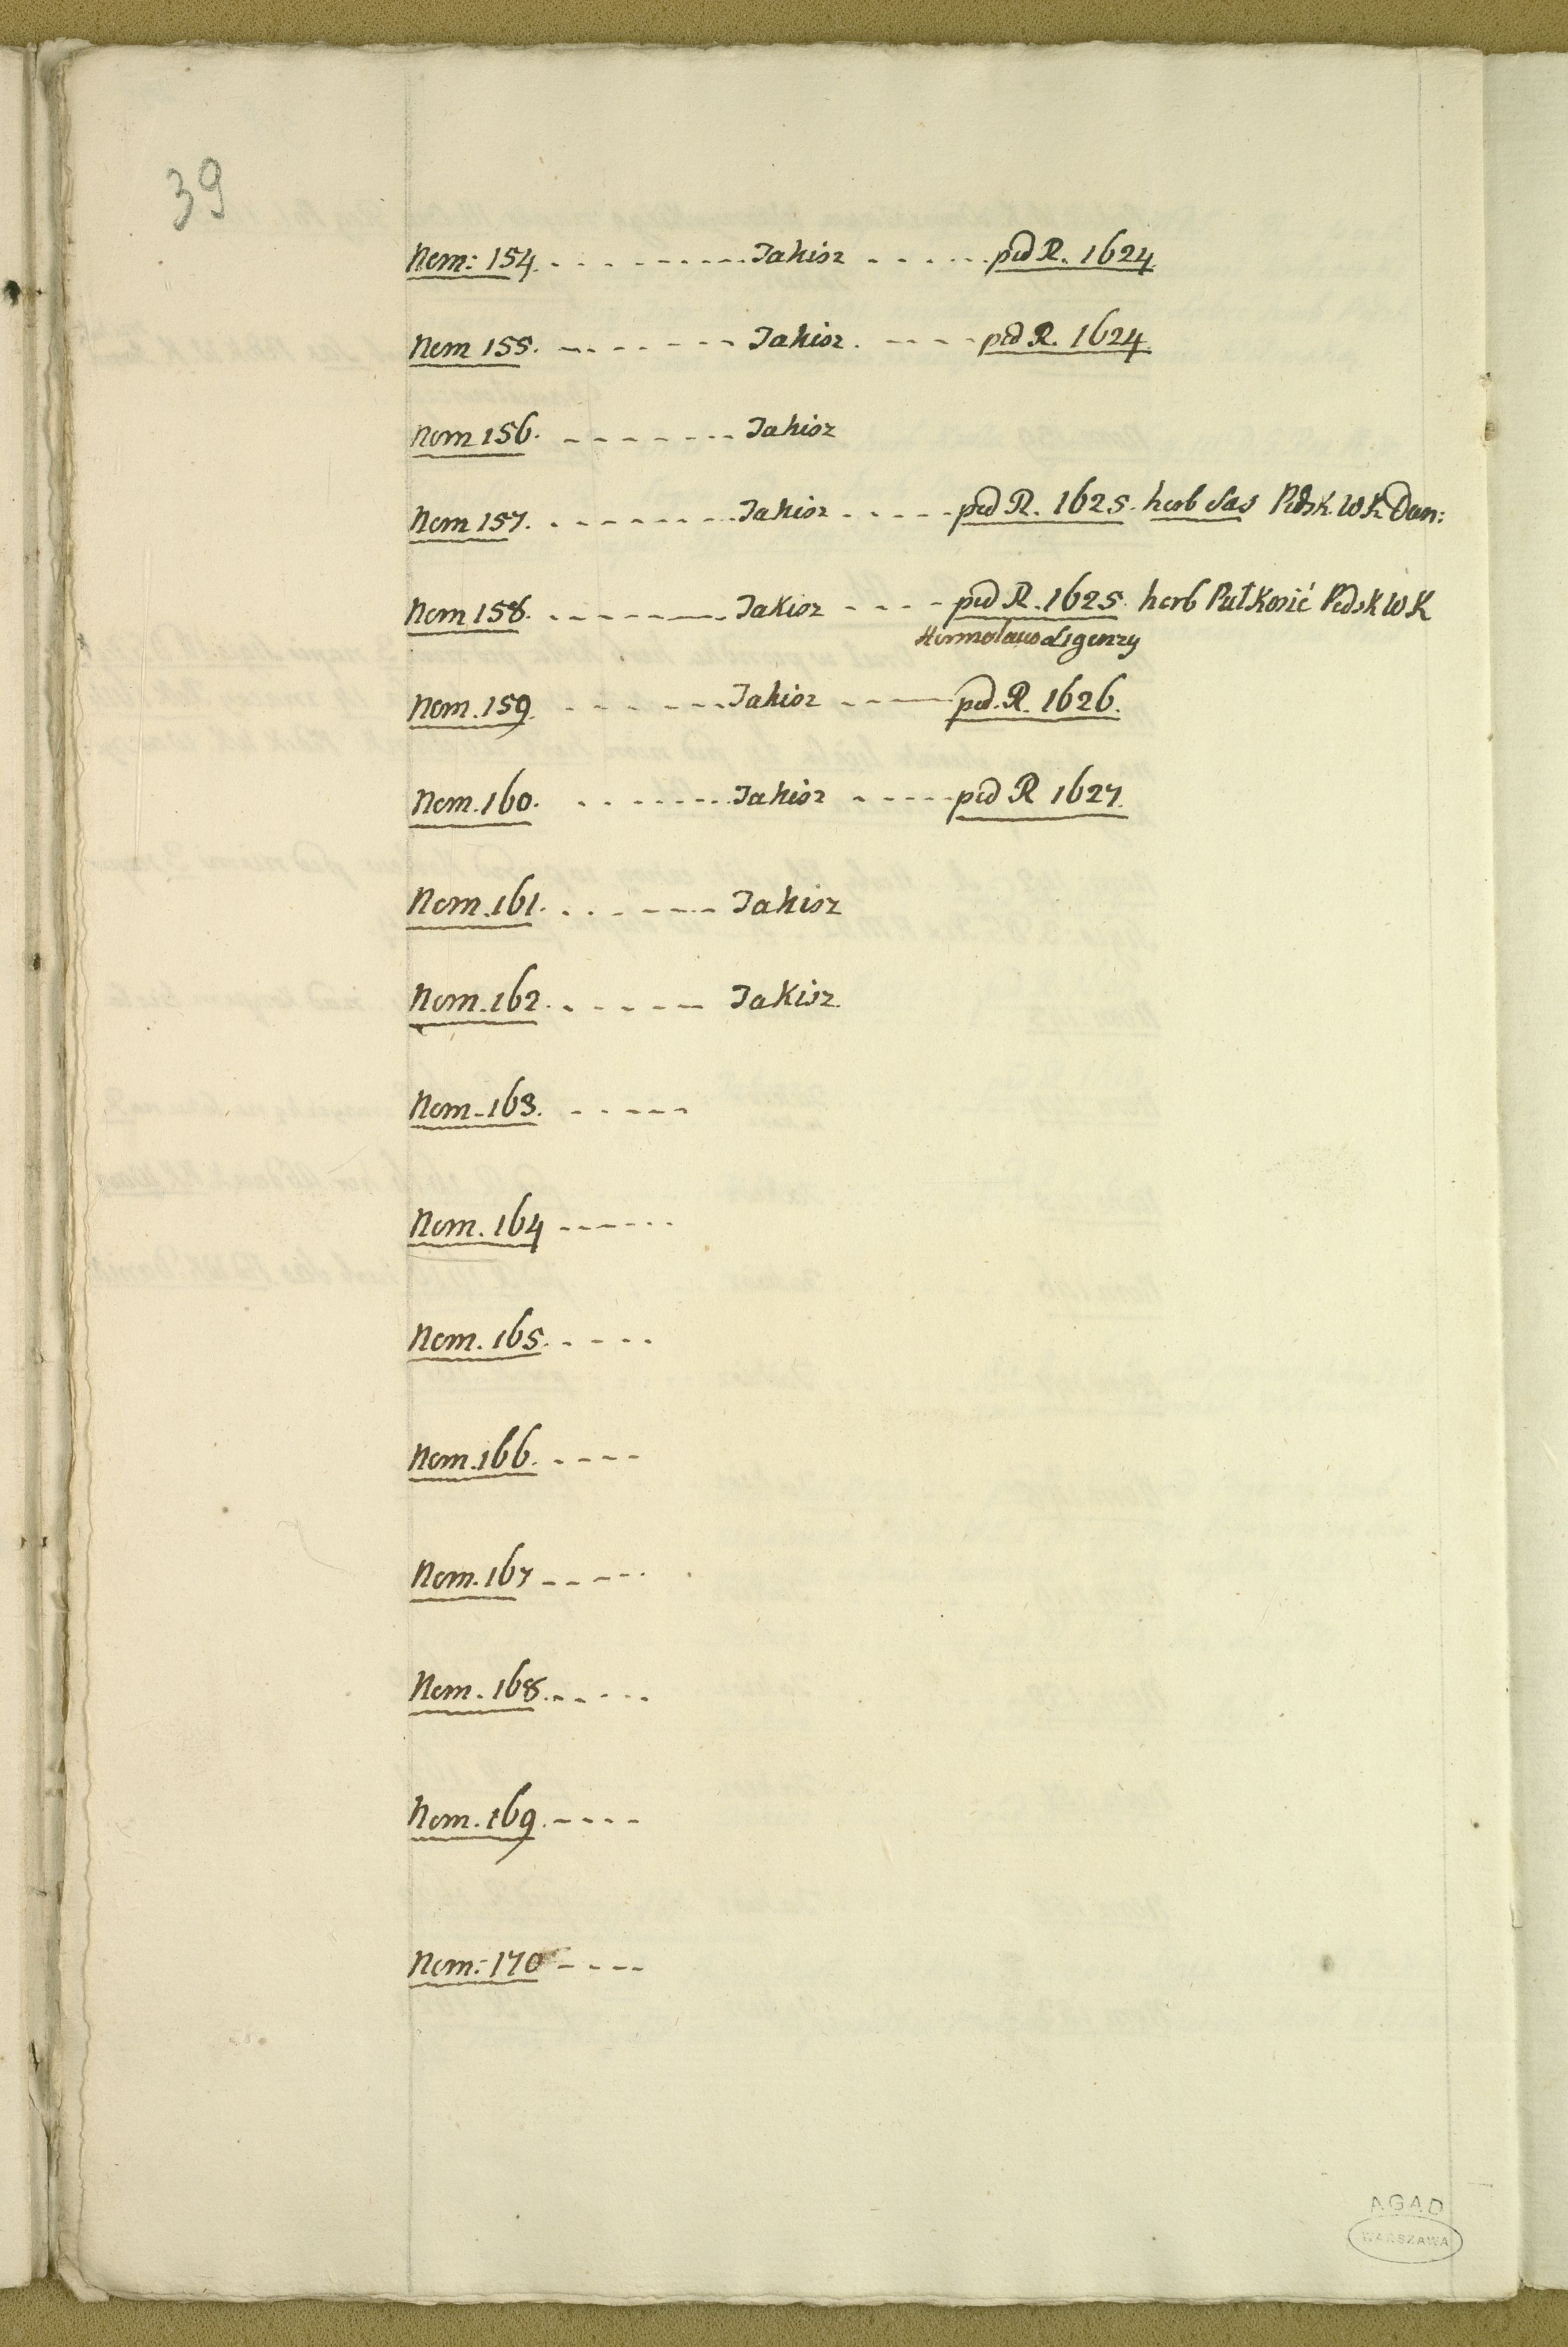 39
Nom: 154. . . - - - - - - - Jakisz . . . . . . pod R. 1624
Nom 155. - - - - - - - Jakisz. - - - - pod R. 1624
Nom 156. - - - - - - - Jakisz
Nom 157. . - - - - - - - Jakisz . - - - - pod R. 1625. herb Sas Podsk. WK Dan:
Nom 158. . - - - - - - Jakisz - - - - pod R. 1625. herb Pułkozić Podsk WK
Ligenzy
Nom. 159. - - - - - - Jakisz - - - pod. R. 1626.
Nom. 160. . - - - - - - Jakisz - - - - - pod R 1627.
Nom. 161. . . - - - - Jakisz
Nom. 162. . - - - - Jakisz.
Nom. 163. . - - - -
Nom. 164 - - - - - -
Nom. 165. . - - -
Nom. 166. . - - -
Nom. 167 - - - - -
Nom. 168. . - - - -
Nom. 169. - - - -
Nom: 170 - - - -
AGAD
WARSZAWA